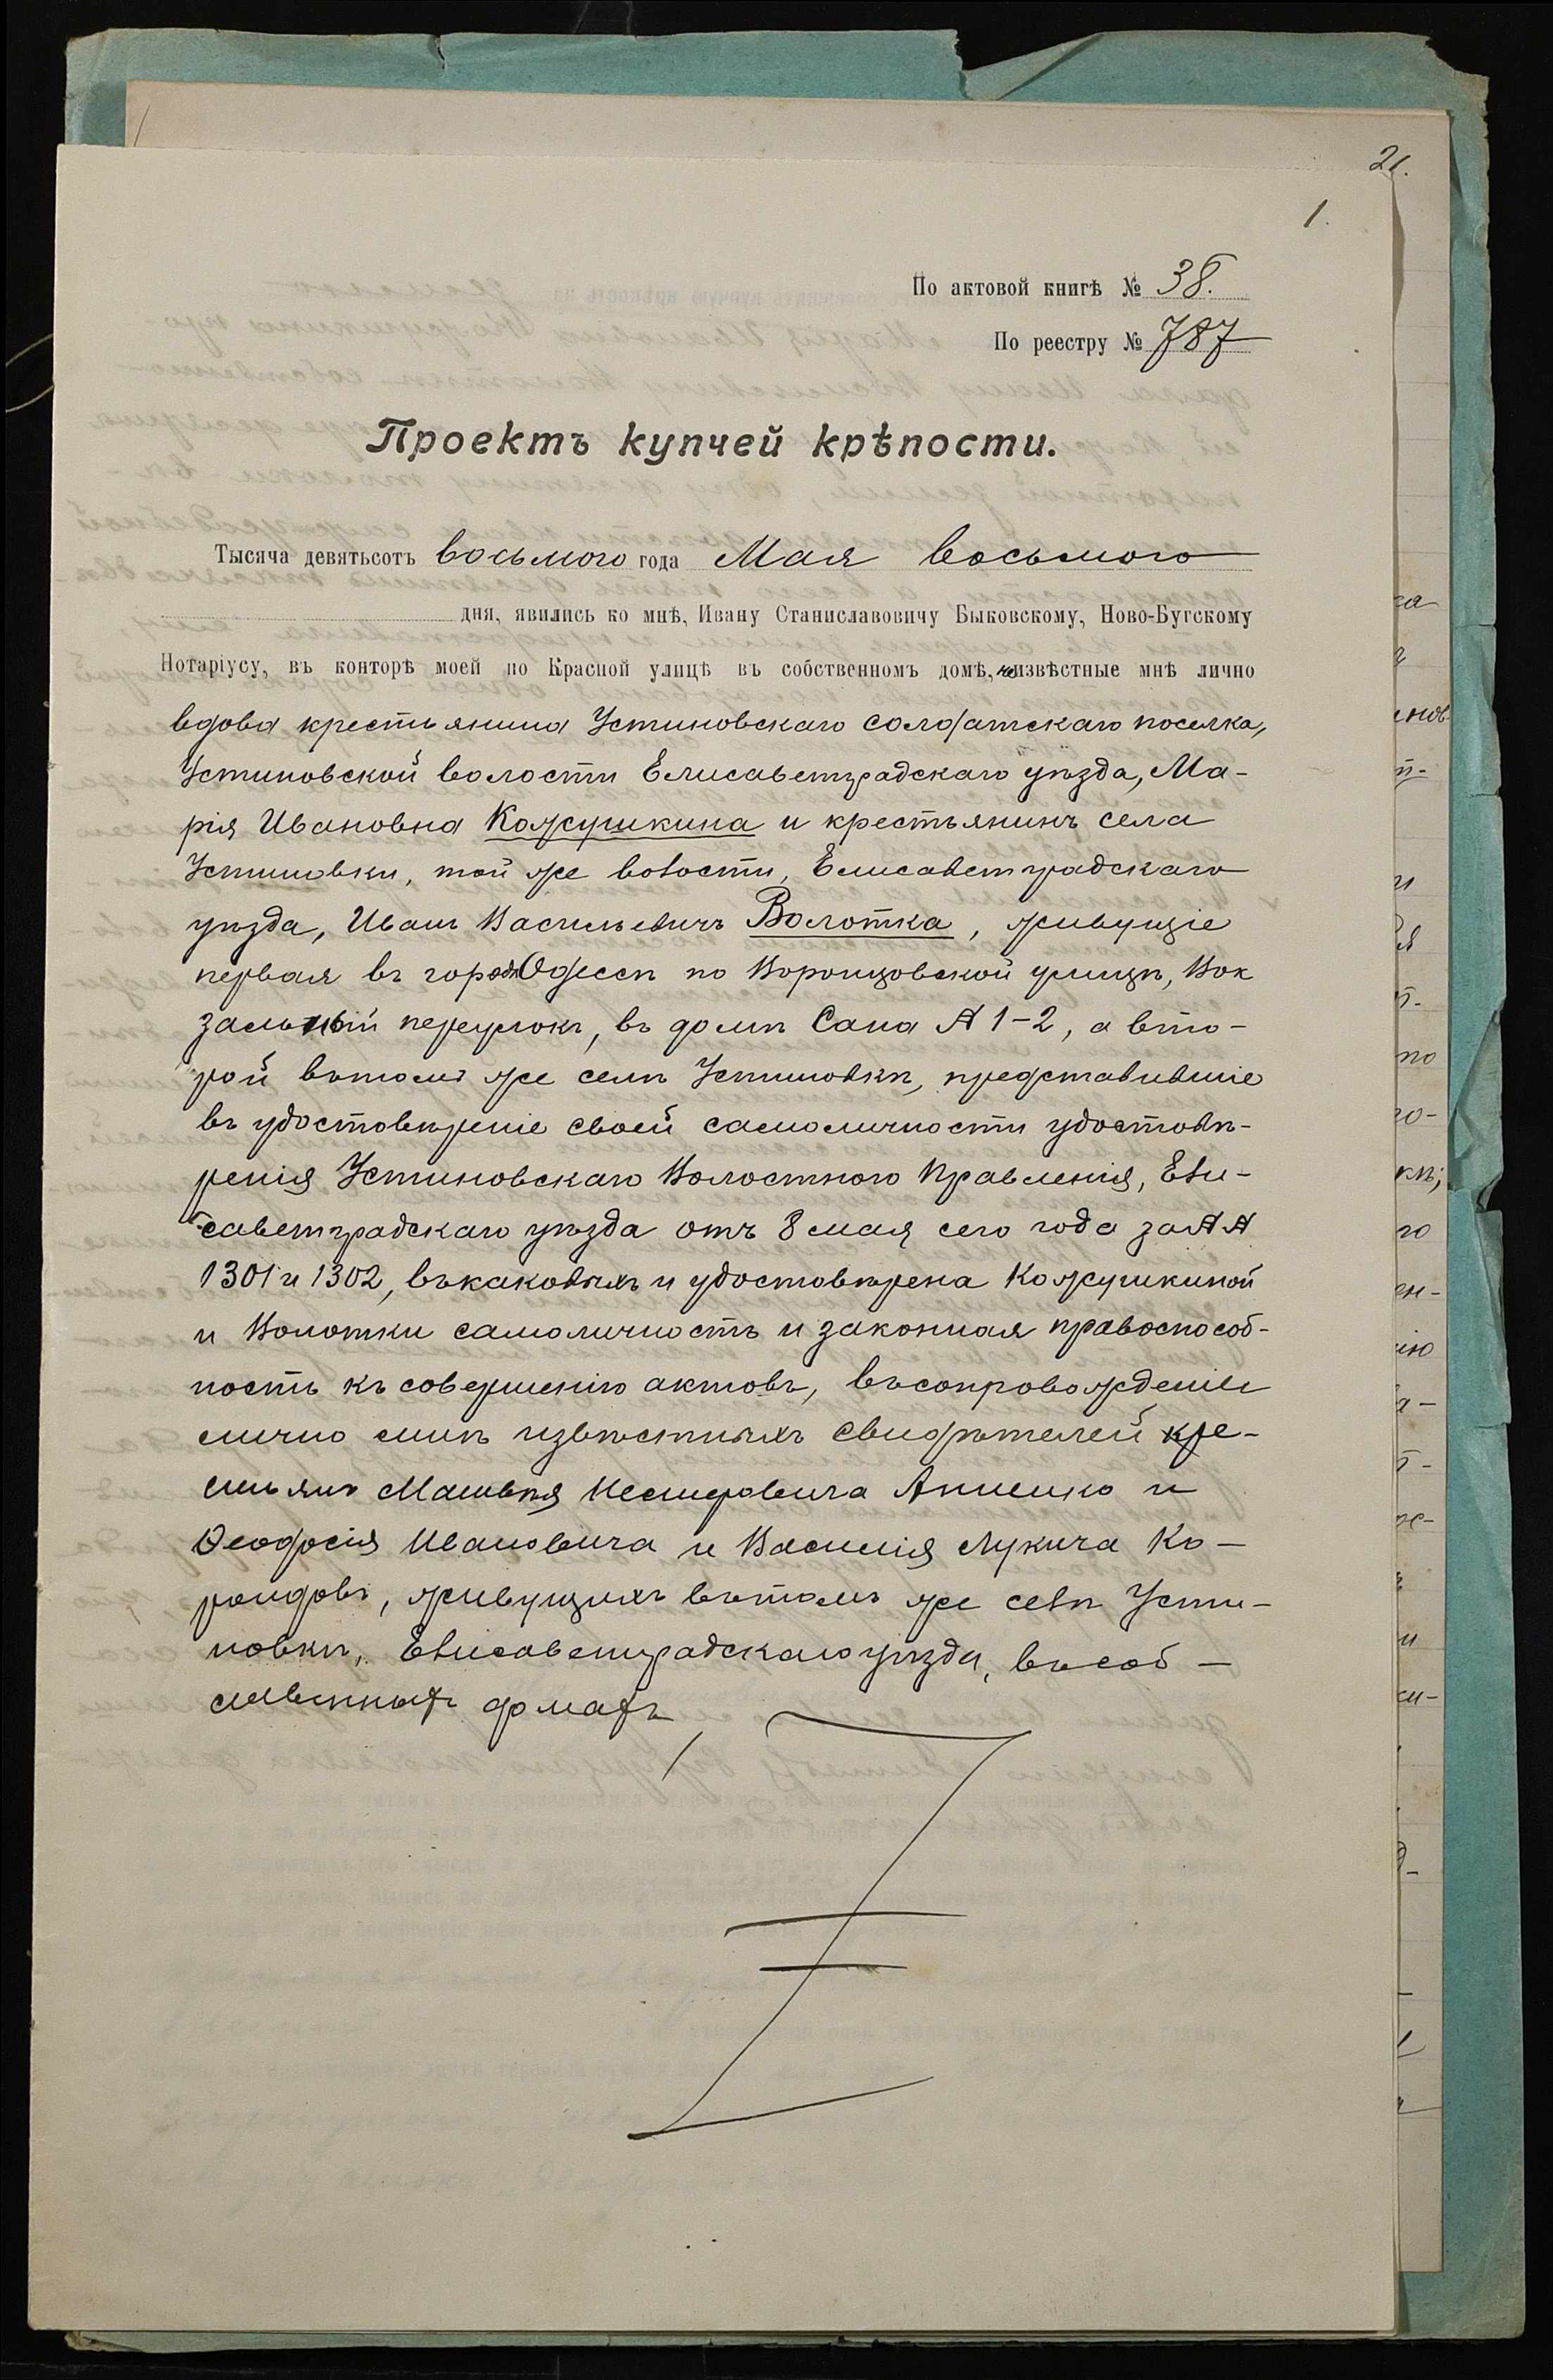 21.
1.
По актовой книгѣ № 38.
По реестру № 787
Проектъ купчей крѣпости.
Тысяча девятьсотъ восьмого года Мая восьмого
дня, явились ко мнѣ, Ивану Станиславовичу Быковскому, Ново-Бугскому
Нотаріусу, въ конторѣ моей по Красной улицѣ въ собственномъ домѣ, неизвѣстные мнѣ лично
вдова крестьянина Устиновскаго солдатскаго поселка,
Устиновской волости Елисаветградскаго уѣзда, Ма-
рія Ивановна Кожушкина и крестьянинъ села
Устиновки, той же волости, Елисаветградскаго
уѣзда, Иванъ Васильевичъ Волотка, живущіе
первая въ городѣ Одессѣ по Воронцовской улицѣ, Вок
зальный переулокъ, въ домѣ Сана № 1-2, а вто-
рой въ томъ же селѣ Устиновкѣ, представившіе
въ удостовѣреніе своей самоличности удостовѣ-
ренія Устиновскаго Волостного Правленія, Ели-
саветградскаго уѣзда отъ 8 мая сего года за №№
1301 и 1302, въ каковыхъ и удостовѣрена Кожушкиной
и Волотки самоличность и законная правоспособ-
ность къ совершенію актовъ, въ сопровожденіи
лично мнѣ извѣстныхъ свидѣтелей кре-
стьянъ Матвѣя Несторовича Анненко и
Ѳеодосія Ивановича и Василія Лукича Ко-
рондовъ, живущихъ въ томъ же селѣ Усти-
новкѣ, Елисаветградскаго уѣзда, въ соб-
ственныхъ домахъ,